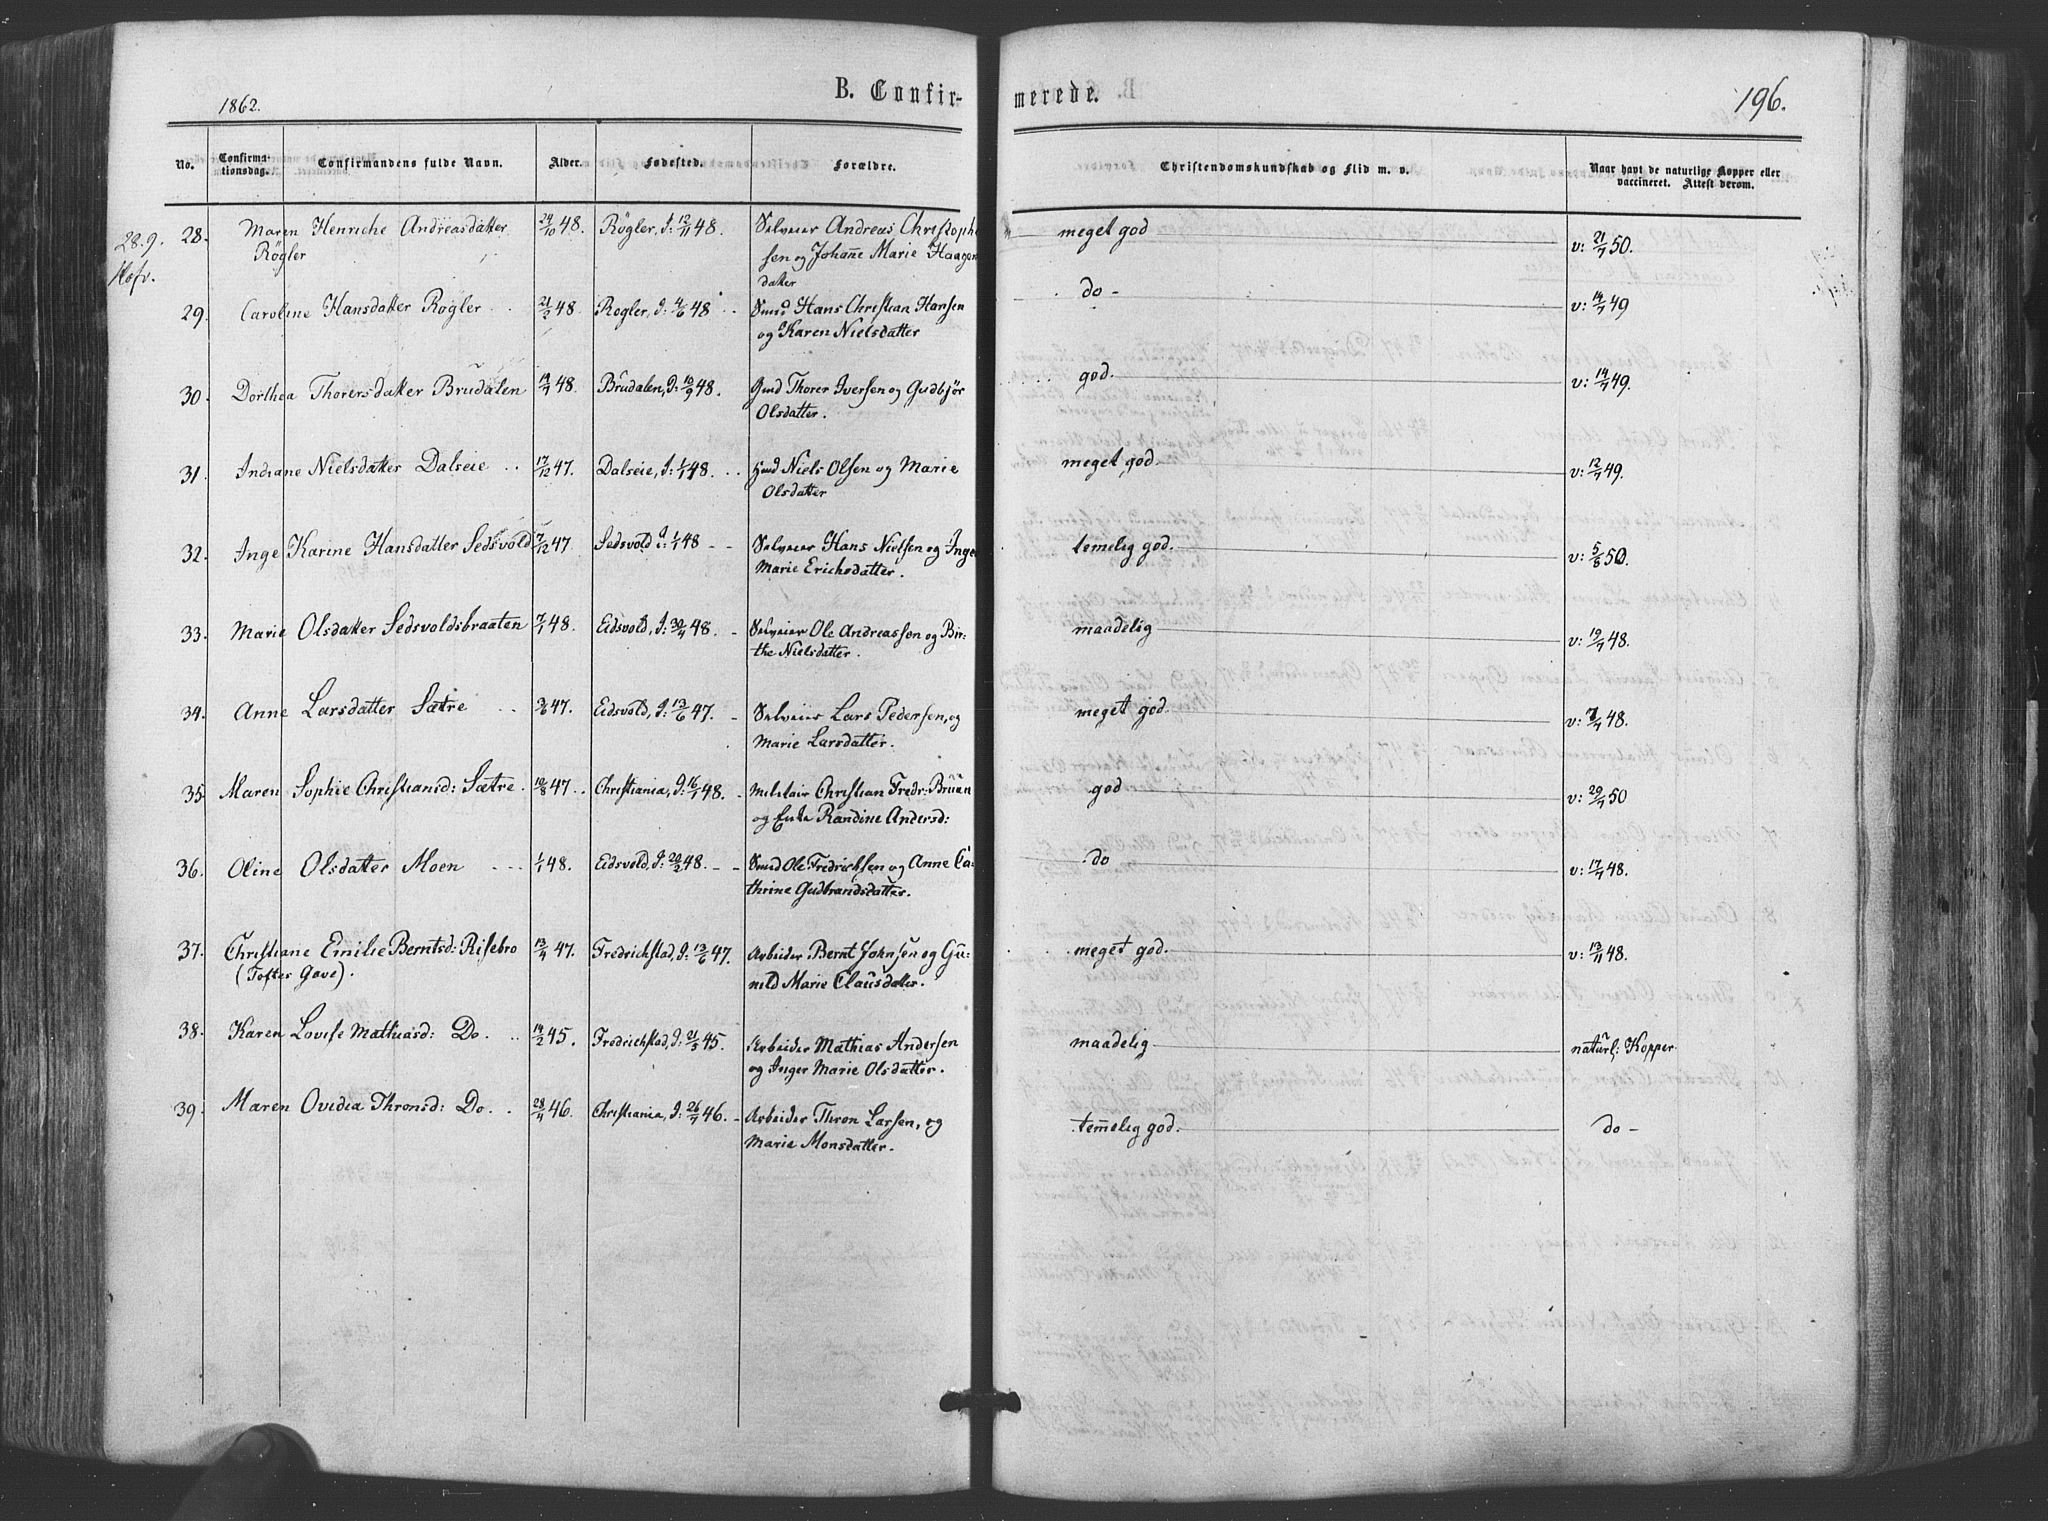 1862.
B. Confir-
merede.
196.
No.
Confirma-
tionsdag.
Confirmandens fulde Navn.
Alder.
Fødested.
Forældre.
Christendomskundskab og Flid m. v.
Naar havt de naturlige Kopper eller
vaccineret. Attest derom.
28.9.
28. Maren Henriche Andreasdatter 24/10 48. Røgler, d: 12/11 48. Selveier Andreas Christophe meget god v: 21/7 50.
Røgler sen og Johañe Marie Haagen
datter
29. Caroline Hansdatter Røgler 21/2 48. Røgler, d: 4/6 48 Smed Hans Christian Hansen do - v: 14/7 49
og Karen Nielsdatter
30. Dorthea Thorersdatter Brudalen 48. Brudalen, d: 10/9 48. Gmd Thorer Iversen og Gudbjør god. v: 14/7 49.
Olsdatter.
31. Indiane Nielsdatter Dalseie 17/12 47. Dalseie, d: 1/1 48. Hmd Niels Olsen og Marie meget god. v: 12/7 49.
Olsdatter
32. Inge Karine Hansdatter Sedsvold 7/12 47. Sedsvold d: 1/1 48 Selveier Hans Nielsen og Inger temelig god. v: 5/8 50.
Marie Erichsdatter.
33. Marie Olsdatter Sedsvoldsbraaten 7/1 48. Eidsvold, d: 30/4 48. Selveier Ole Andreassen og Bir- maadelig v: 19/7 48.
the Nielsdatter.
34. Anne Larsdatter Sætre 47. Eidsvold, d: 13/6 47. Selveier Lars Pedersen, og meget god. v: 48.
Marie Larsdatter.
35. Maren Sophie Christiansd: Sætre. 10/8 47. Christiania, d: 16/1 48. Militair Christian Fredr: Brüun god v: 29/7 50
og Enke Randine Andersd:
36. Oline Olsdatter Moen 1/1 48. Eidsvold, d: 20/2 48. Smed Ole Fredrichsen og Anne Ca- do v: 17/7 48.
thrine Gudbrandsdatter.
37. Christiane Emilie Berntsd: Risebro 13/4 47. Fredrichstad, d: 13/6 47. Arbeider Bernt Johnsen og Gu- meget god. v: 13/11 48.
(Toftes Gave). nild Marie Clausdatter.
38. Karen Lovise Mathiasd: Do. 14/2 45. Fredrichstad, d: 21/5 45. Arbeider Mathias Andersen maadelig naturl: Kopper
og Inger Marie Olsdatter.
39. Maren Ovidia Thronsd: Do. 28/4 46. Christiania, d: 26/7 46. Arbeider Thron Larsen, og temelig god. do -
Marie Monsdatter.